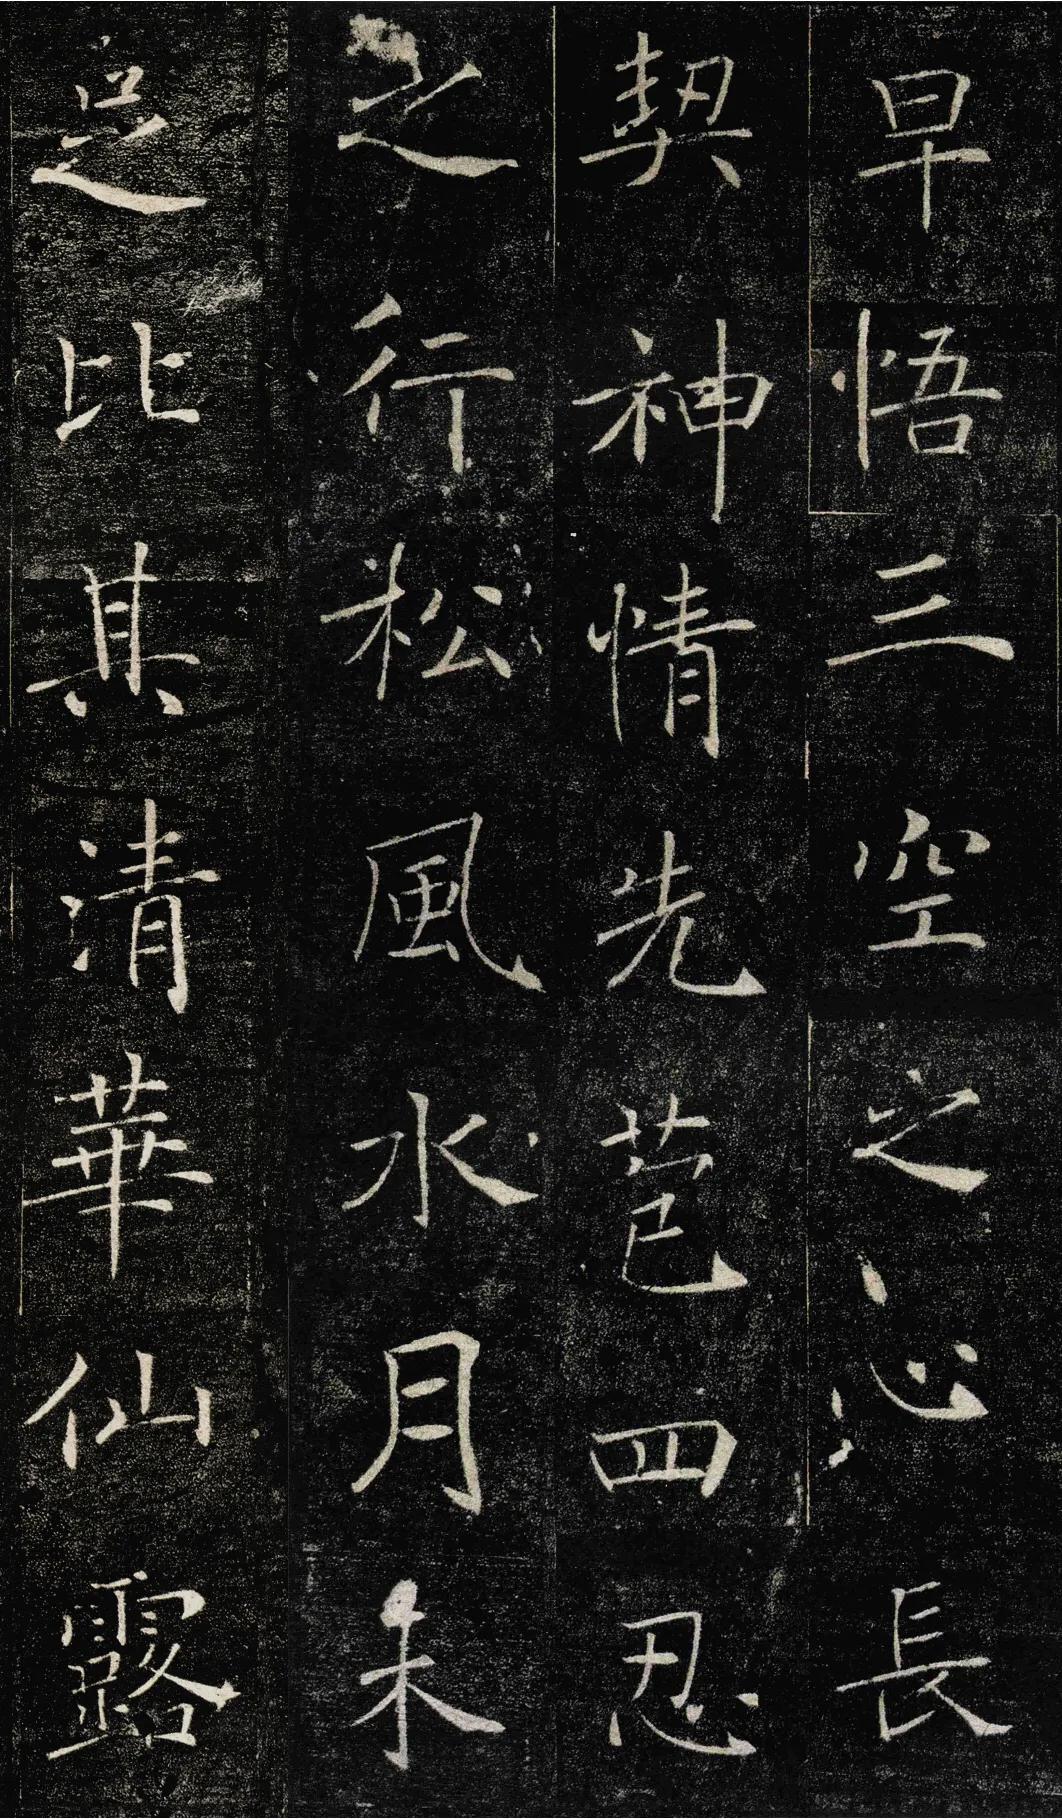 早悟三空之心長
契神情先苞四忍
之行松風水月未
足比其清華仙露